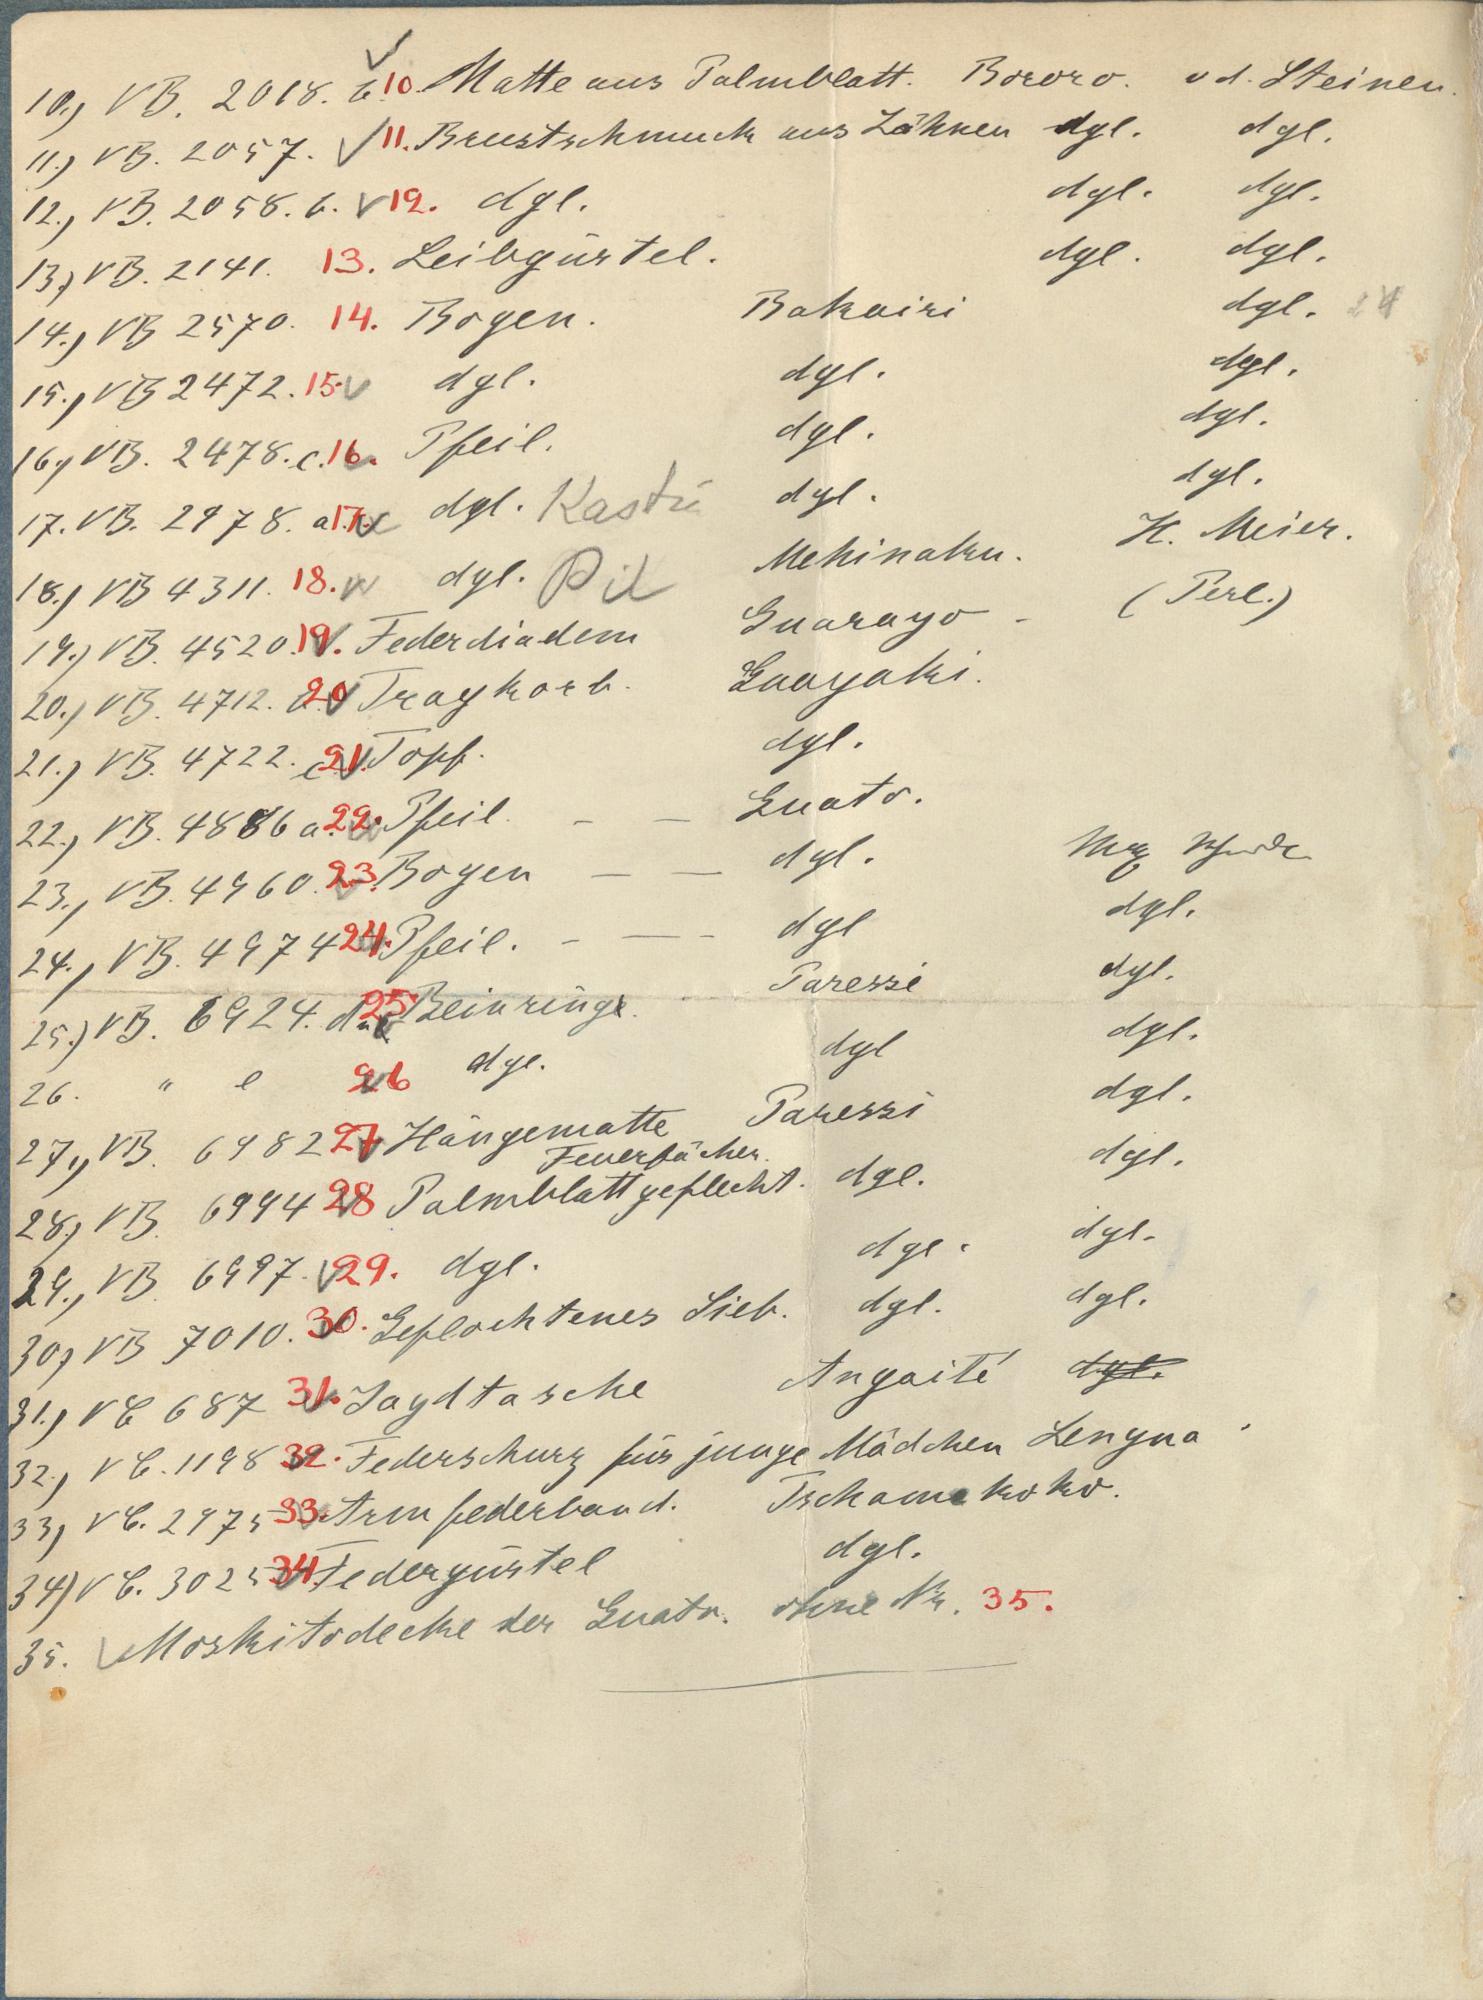 10.) VB. 2018. b. 10. Matte aus Palmblatt. Bororo. v d. Steinen.
11.) VB. 2057. 11. Brustschmuck aus Zähnen dgl. dgl.
12.) VB. 2058. b. 12. dgl. dgl. dgl.
13.) VB. 2141. 13. Leibgürtel. dgl. dgl.
14.) VB 2570. 14. Bogen. Bakairi dgl.
15.) VB 2472. 15. dgl. dgl. dgl.
16.) VB. 2478. c. 16. Pfeil. dgl. dgl.
17. VB. 2978. a. 17. dgl. dgl. dgl.
18.) VB 4311. 18. dgl. Mehinaku. H. Meier.
19.) VB. 4520. 19. Federdiadem Guarayo - (Perl.)
20.) VB. 4712. 20 Tragkorb. Guayaki.
21.) VB. 4722. c 21. Topf. dgl.
22.) VB. 4886 a. 22. Pfeil. — — Guato.
23.) VB. 4960. 23. Bogen — — dgl. Max Schmidt
24.) VB. 4974 24. Pfeil. - — dgl dgl.
25.) VB. 6924. d 25. Beinringe. Paressi dgl.
26. " e 26 dgl. dgl dgl.
27.) VB. 6982 27 Hängematte Paressi dgl.
Feuerfächer.
28.) VB. 6994 28 Palmblattgeflecht. dgl. dgl.
29.) VB 6997. 29. dgl. dgl. dgl.
30.) VB 7010. 30. Geflochtenes Sieb. dgl. dgl.
31.) VC 687 31. Jagdtasche Angaité dgl.
32.) VC. 1198 32. Federschurz für junge Mädchen Lengua
33.) VC. 2975 33. Armfederband. Tschamakoko.
34.) VC. 3025 34. Federgürtel dgl.
35. Moskitodecke der Guato. ohne Nr. 35.